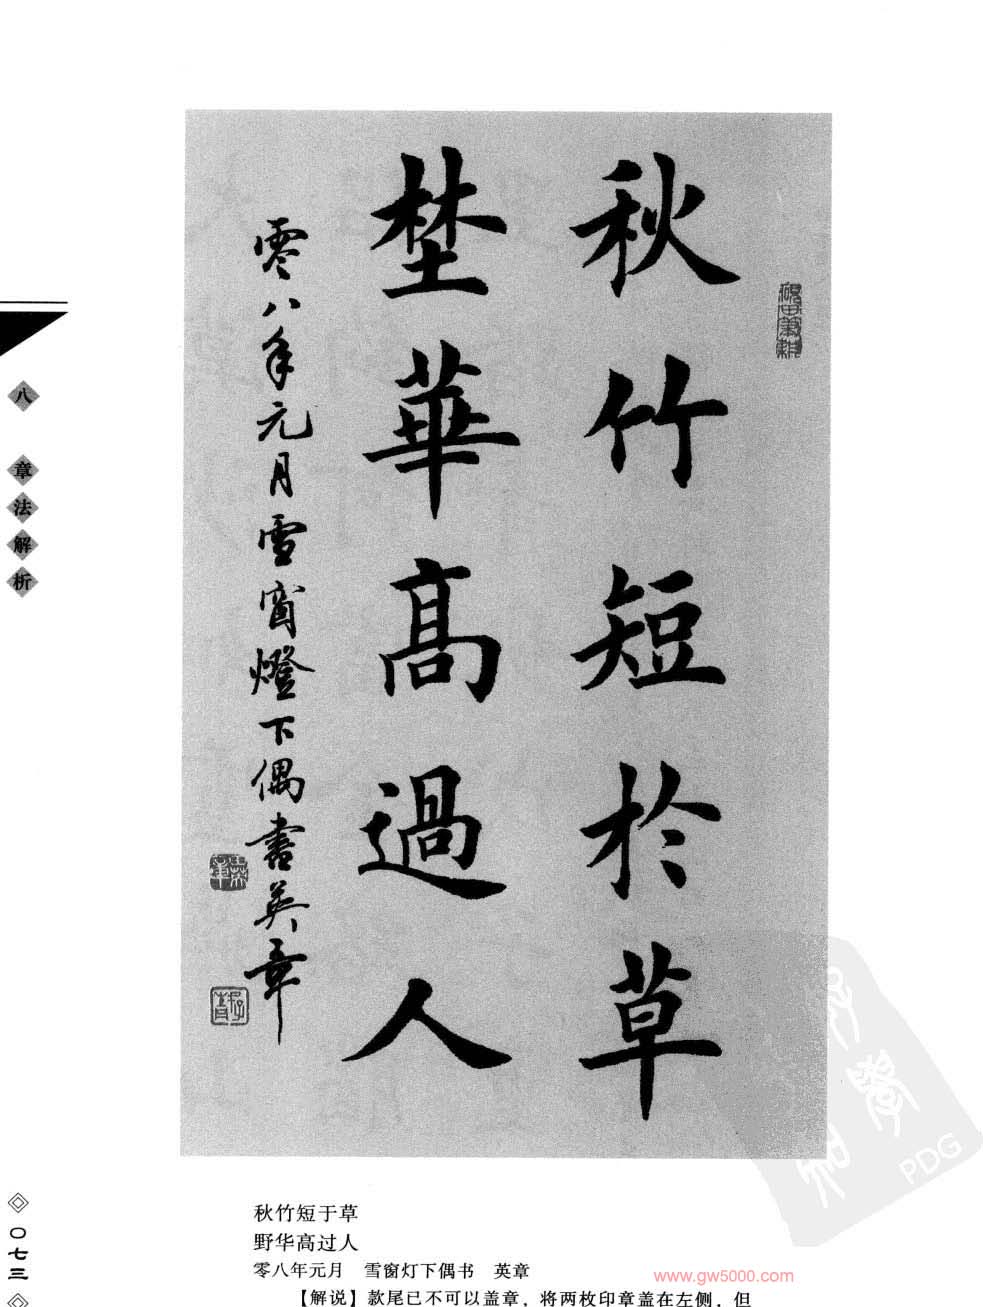 秋竹短於草
埜華高過人
零八年元月雪窗燈下偶書英章
八 章法解析
秋竹短于草
野华高过人
零八年元月 雪窗灯下偶书 英章
【解说】款尾已不可以盖章，将两枚印章盖在左侧，但
〇七三
www.gw5000.com
PDG